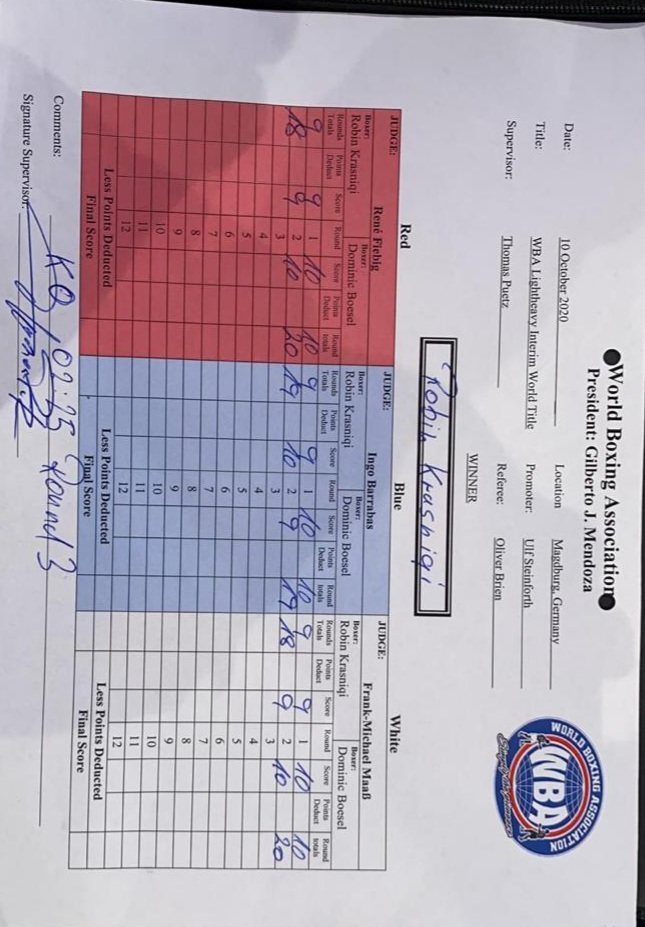 World Boxing Association
President: Gilberto J. Mendoza
Date: 10 October 2020 Location Magdburg, Germany
Title: WBA Lightheavy Interim World Title Promoter: Ulf Steinforth
Supervisor: Thomas Puetz Referee: Oliver Brien
WORLD BOXING ASSOCIATION
WBA
WINNER
Robin Krasniqi
Red Blue White
JUDGE: René Fiebig JUDGE: Ingo Barrabas JUDGE: Frank-Michael Maaß
Boxer: Boxer: Boxer: Boxer: Boxer: Boxer:
Robin Krasniqi Dominic Boesel Robin Krasniqi Dominic Boesel Robin Krasniqi Dominic Boesel
Rounds Totals Points Deduct Score Round Score Points Deduct Round totals Rounds Totals Points Deduct Score Round Score Points Deduct Round totals Rounds Totals Points Deduct Score Round Score Points Deduct Round totals
9 9 1 10 10 9 9 1 10 10 9 9 1 10 10
18 9 2 10 20 19 10 2 9 19 18 9 2 10 20
3 3 3
4 4 4
5 5 5
6 6 6
7 7 7
8 8 8
9 9 9
10 10 10
11 11 11
12 12 12
Less Points Deducted Less Points Deducted Less Points Deducted
Final Score Final Score Final Score
Comments: KO 02:25 Round 3
Signature Supervisor: